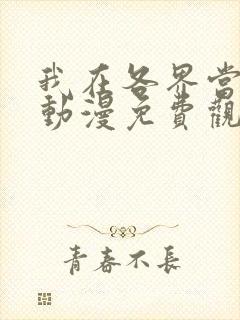 我在各界當
動漫免費觀
青春不長